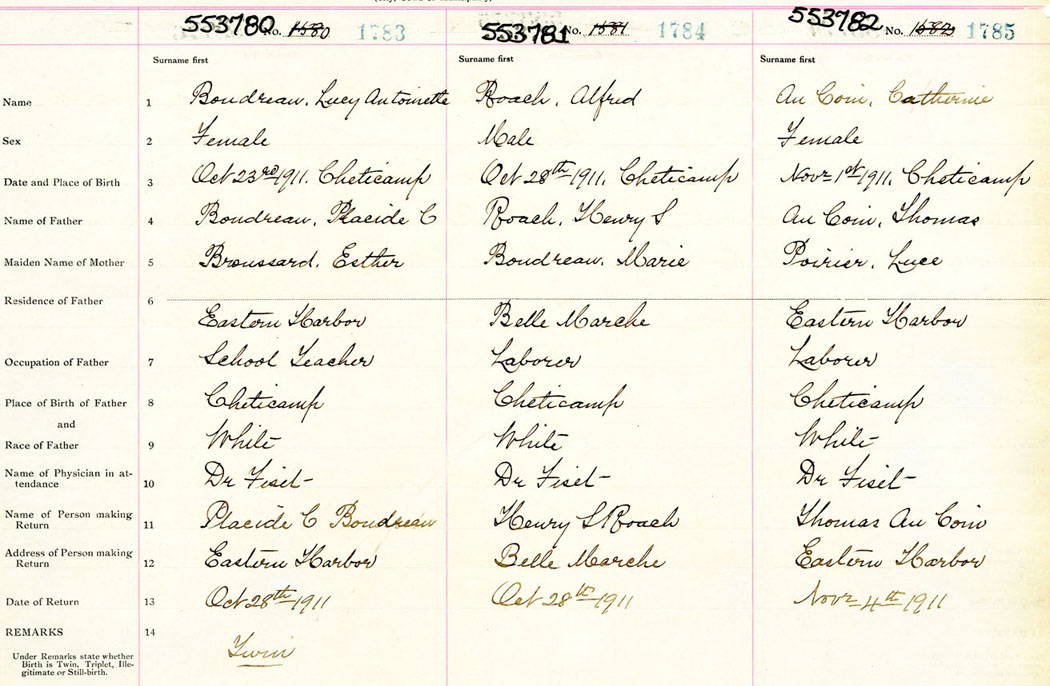 553780 No. 1580 1783 553781 No. 1581 1784 553782 No. 1582 1785
Surname first Surname first Surname first
Name 1 Boudreau, Lucy Antoinette Roach, Alfred Au Coin, Catherine
Sex 2 Female Male Female
Date and Place of Birth 3 Oct 23rd 1911, Cheticamp Oct 28th 1911, Cheticamp Novr 1st 1911, Cheticamp
Name of Father 4 Boudreau, Placide C Roach, Henry S Au Coin, Thomas
Maiden Name of Mother 5 Broussard, Esther Boudreau, Marie Poirier, Luce
Residence of Father 6
Eastern Harbor Belle Marche Eastern Harbor
Occupation of Father 7 School Teacher Laborer Laborer
Place of Birth of Father 8 Cheticamp Cheticamp Cheticamp
and
Race of Father 9 White White White
Name of Physician in at-
tendance 10 Dr Fiset Dr Fiset Dr Fiset
Name of Person making
Return 11 Placide C Boudreau Henry S Roach Thomas Au Coin
Address of Person making
Return 12 Eastern Harbor Belle Marche Eastern Harbor
Date of Return 13 Oct 28th 1911 Oct 28th 1911 Novr 4th 1911
REMARKS 14
Twin
Under Remarks state whether
Birth is Twin, Triplet, Ille-
gitimate or Still-birth.